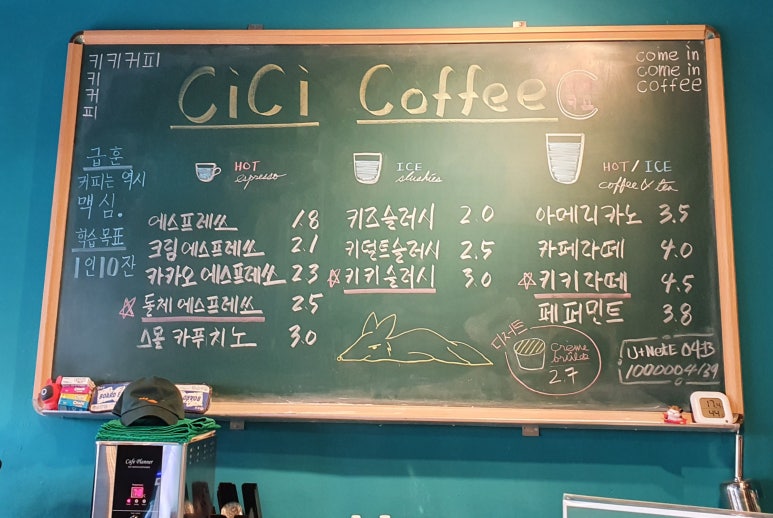 키키커피
키
커
피
CiCi Coffee
come in
come in
coffee
급훈
커피는 역시
맥심.
학습목표
1인10잔
HOT
espresso
에스프레쏘 1.8
크림에스프레쏘 2.1
카카오 에스프레쏘 2.3
돌체에스프레쏘 2.5
스몰 카푸치노 3.0
ICE
slushies
키즈슬러시 2.0
키덜트슬러시 2.5
키키슬러시 3.0
HOT/ICE
coffee & tea
아메리카노 3.5
카페라떼 4.0
키키라떼 4.5
페퍼민트 3.8
디저트
creme
brulee
2.7
Cafe Planner